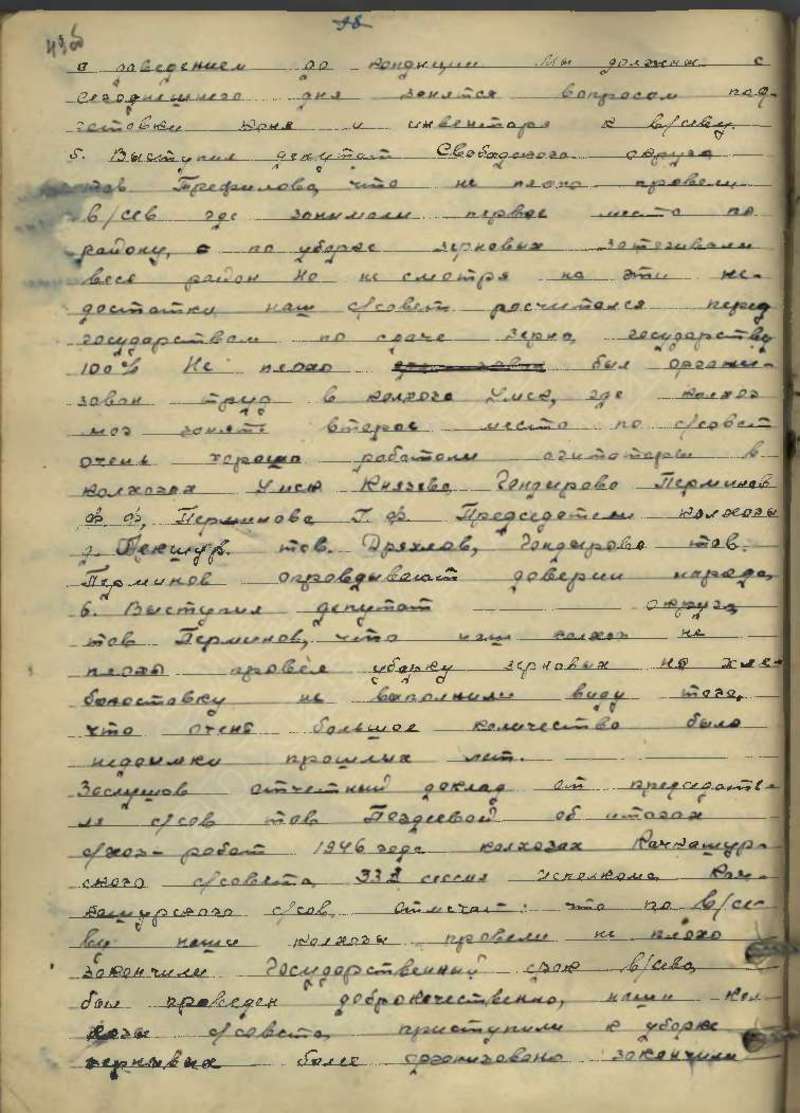 98
49об
с заведением по кондиции Мы должны с
сегодняшнего дня занятся вопросом под-
готовки коня и инвентаря к в/севу.
5. Выступил депутат Свободского округа
тов Трефилова, что не плохо провели
в/сев где занимали первое место по
району, а по уборке зерновых затягивали
весь район Но не смотря на эти не-
достатки наш с/совет росчитался перед
государством по сдаче зерна, государству
100% Не плохо был органи-
зован труд в колхоге Умск, где колхоз
мог занять второе место по с/совет
очень хорошо работали агитаторы в
колхозах Умск Князево Гондырево Перминов
Ф. Ф, Перминова Г. Ф. Председатели колхозы
д. тов. Дряхлов, Гондырево тов.
Перминов оправдывают доверии народа,
6. Выступил депутат округа,
тов Перминов, что наш колхоз не
плохо провёл уборку зерновых но хле-
бопоставку не выполнили виду того,
что очень большое количество было
недоимки прошлых лет.
Заслушав отчетный доклад от председате-
ля с/сов тов Поздеевой об итогах
с/хоз- работ 1946 года колхозах Качкашур-
ского с/совета, сессия исполкома Кач-
кашурского с/сов. отмечает: что по в/се-
ву наши колхозы провели не плохо
закончили Государственный срок в/сева,
был проведен доброкачественно, наши кол-
хозы с/совета, приступили к уборке
зерновых более организовано закончили